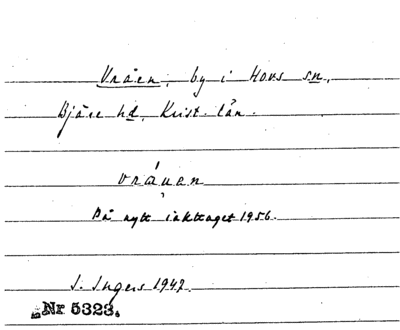 Vråen, by i Hovs sn,
Bjäre hd, Krist. län.
vráuen
På nytt iakttaget 1956.
I. Ingers 1947.
Nr 5323.